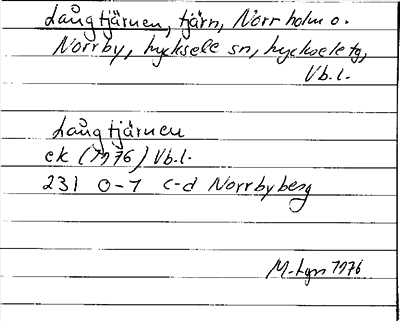 Långtjärnen, tjärn, Norrholm o.
Norrby, Lycksele sn, Lycksele tg,
Vb.l.
Långtjärnen
ek (1976) Vb.l.
231 0-1 c-d Norrbyberg
M. Lgn 1976